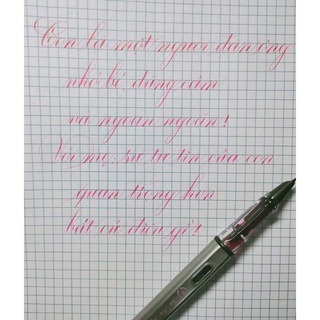 Con là một người đàn ông
nhỏ bé, dũng cảm
và ngoan ngoãn!
Với mẹ, sự tự tin của con
quan trọng hơn
bất cứ điều gì!